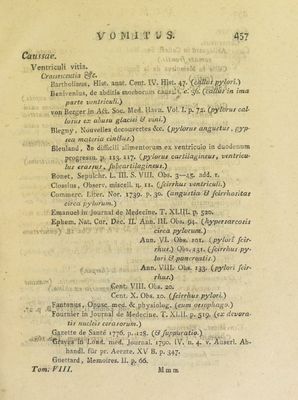 VOMITUS. 457
Caussae.
Ventriculi vitia.
Crassescentia &c.
Bartholinus, Hist. anat. Cent. IV. Hist. 47. (callus pylori.)
Benivenius, de abditis morborum causis. c. 36. (callus in ima
parte ventriculi.)
von Berger in Act. Soc. Med. Havn. Vol. I. p. 72. (pylorus cal-
losus ex abusu glaciei & vini.)
Blegny, Nouvelles decouvertes &c. (pylorus angustus, gyp-
sea materia cinctus.)
Bleuland, de difficili alimentorum ex ventriculo in duodenum
progressu. p. 113. 117. (pylorus cartilagineus, ventricu-
lus crassus, subcartilagineus.)
Bonet, Sepulchr. L. III. S. VIII. Obs. 3—45. add. 1.
Clossius, Observ. miscell. n. 11. (scirrhus ventriculi.)
Commerc. Liter. Nor. 1739. p. 30. (angustia & scirrhositas
circa pylorum.)
Emanuel in Journal de Medecine. T. XLII. p. 520.
Ephem. Nat. Cur. Dec. II. Ann. III. Obs. 94. (hypersarcosis
circa pylorum.)
Ann. VI. Obs. 101. (pylori scir-
rhus.) Obs. 231. (scirrhus py-
lori & pancreatis.)
Ann. VIII. Obs. 133. (pylori scir-
rhus.)
Cent. VIII. Obs. 20.
Cent. X. Obs. 10. (scirrhus pylori.)
Fantonus, Opusc. med. & physiolog. (cum oesophago.)
Fournier in Journal de Medecine. T. XLII. p. 519. (ex devora-
tis nucleis cerasorum.)
Gazette de Santé 1776. p. 128. (& suppuratio.)
Graves in Lond. med. Journal. 1790. IV. n. 4. v. Auserl. Ab-
handl. für pr. Aerzte. XV B. p. 347.
Guettard, Memoires. II. p. 66.
Tom: VIII. M m m